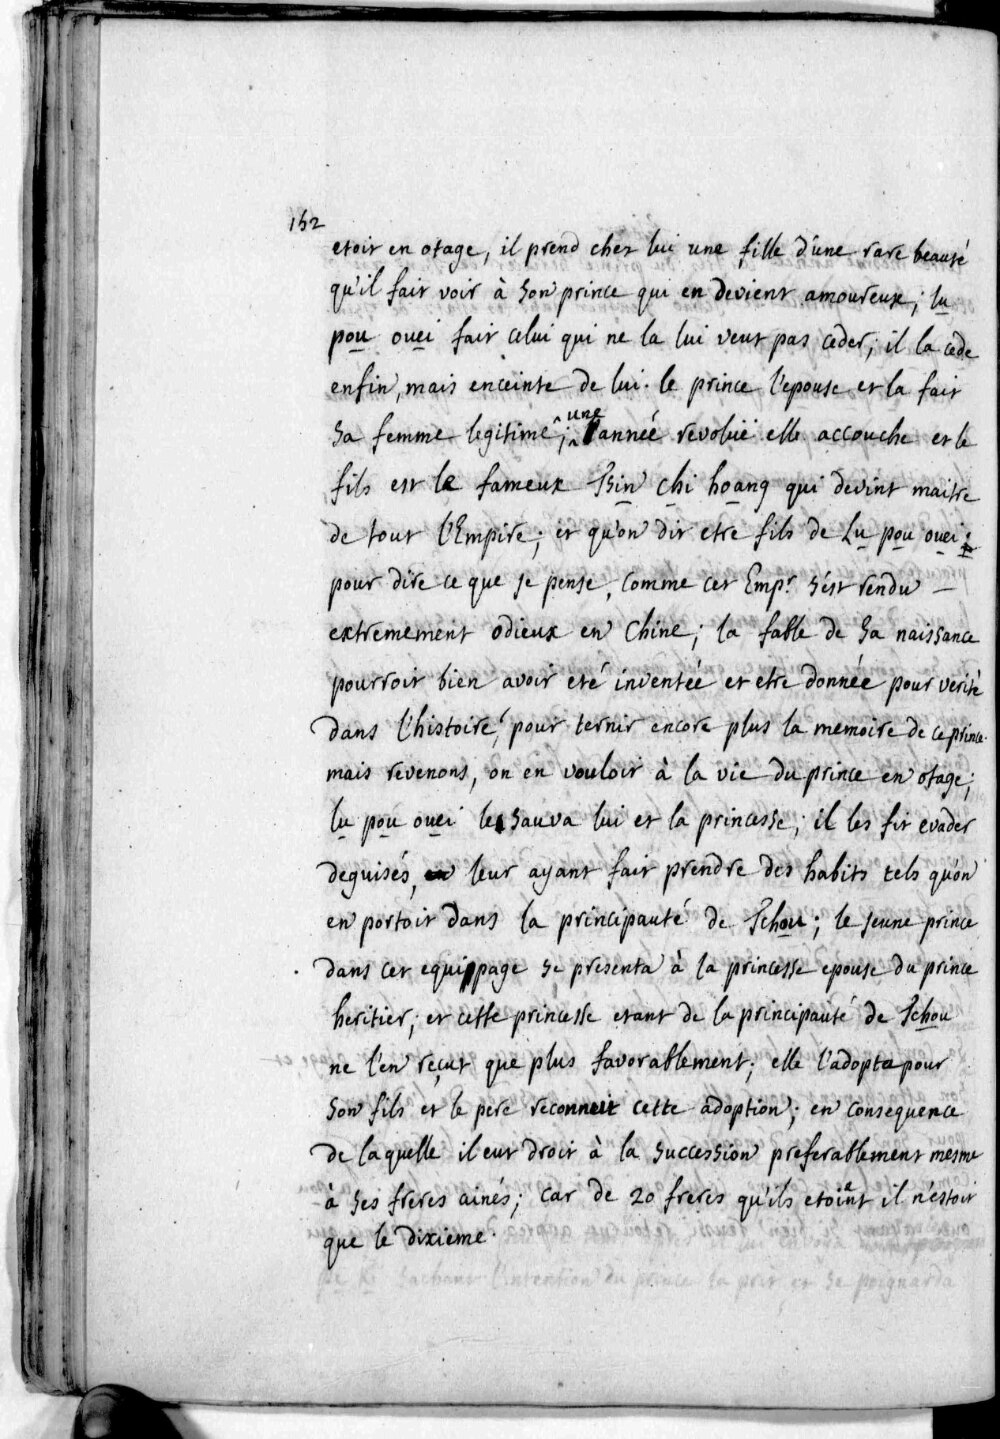 152
etoit en otage, il prend chez lui une fille d'une rare beauté
qu'il fait voir à son prince qui en devient amoureux; lu
pou ouei fait celui qui ne la lui veut pas ceder; il la cede
enfin, mais enceinte de lui. le prince l'epouse et la fait
sa femme legitime; une année revoluë elle accouche et le
fils est le fameux Tsin chi hoang qui devint maitre
de tout l'Empire; et qu'on dit etre fils de Lu pou ouei;
pour dire ce que je pense, comme cet Empr s'est rendu —
extremement odieux en Chine; la fable de sa naissance
pourroit bien avoir eté inventée et etre donnée pour verité
dans l'histoire, pour ternir encore plus la memoire de ce prince.
mais revenons, on en vouloit à la vie du prince en otage;
lu pou ouei le sauva lui et la princesse; il les fit evader
deguisés, leur ayant fait prendre des habits tels qu'on
en portoit dans la principauté de Tchou; le jeune prince
dans cet equippage se presenta à la princesse epouse du prince
heritier; et cette princesse etant de la principauté de Tchou
ne l'en reçut que plus favorablement; elle l'adopta pour
son fils et le pere reconnut cette adoption; en consequence
de laquelle il eut droit à la succession preferablement mesme
à ses freres ainés; car de 20 freres qu'ils etoient il n'estoit
que le dixieme.
pe Ki sachant l'intention du prince la prit, et se poignarda